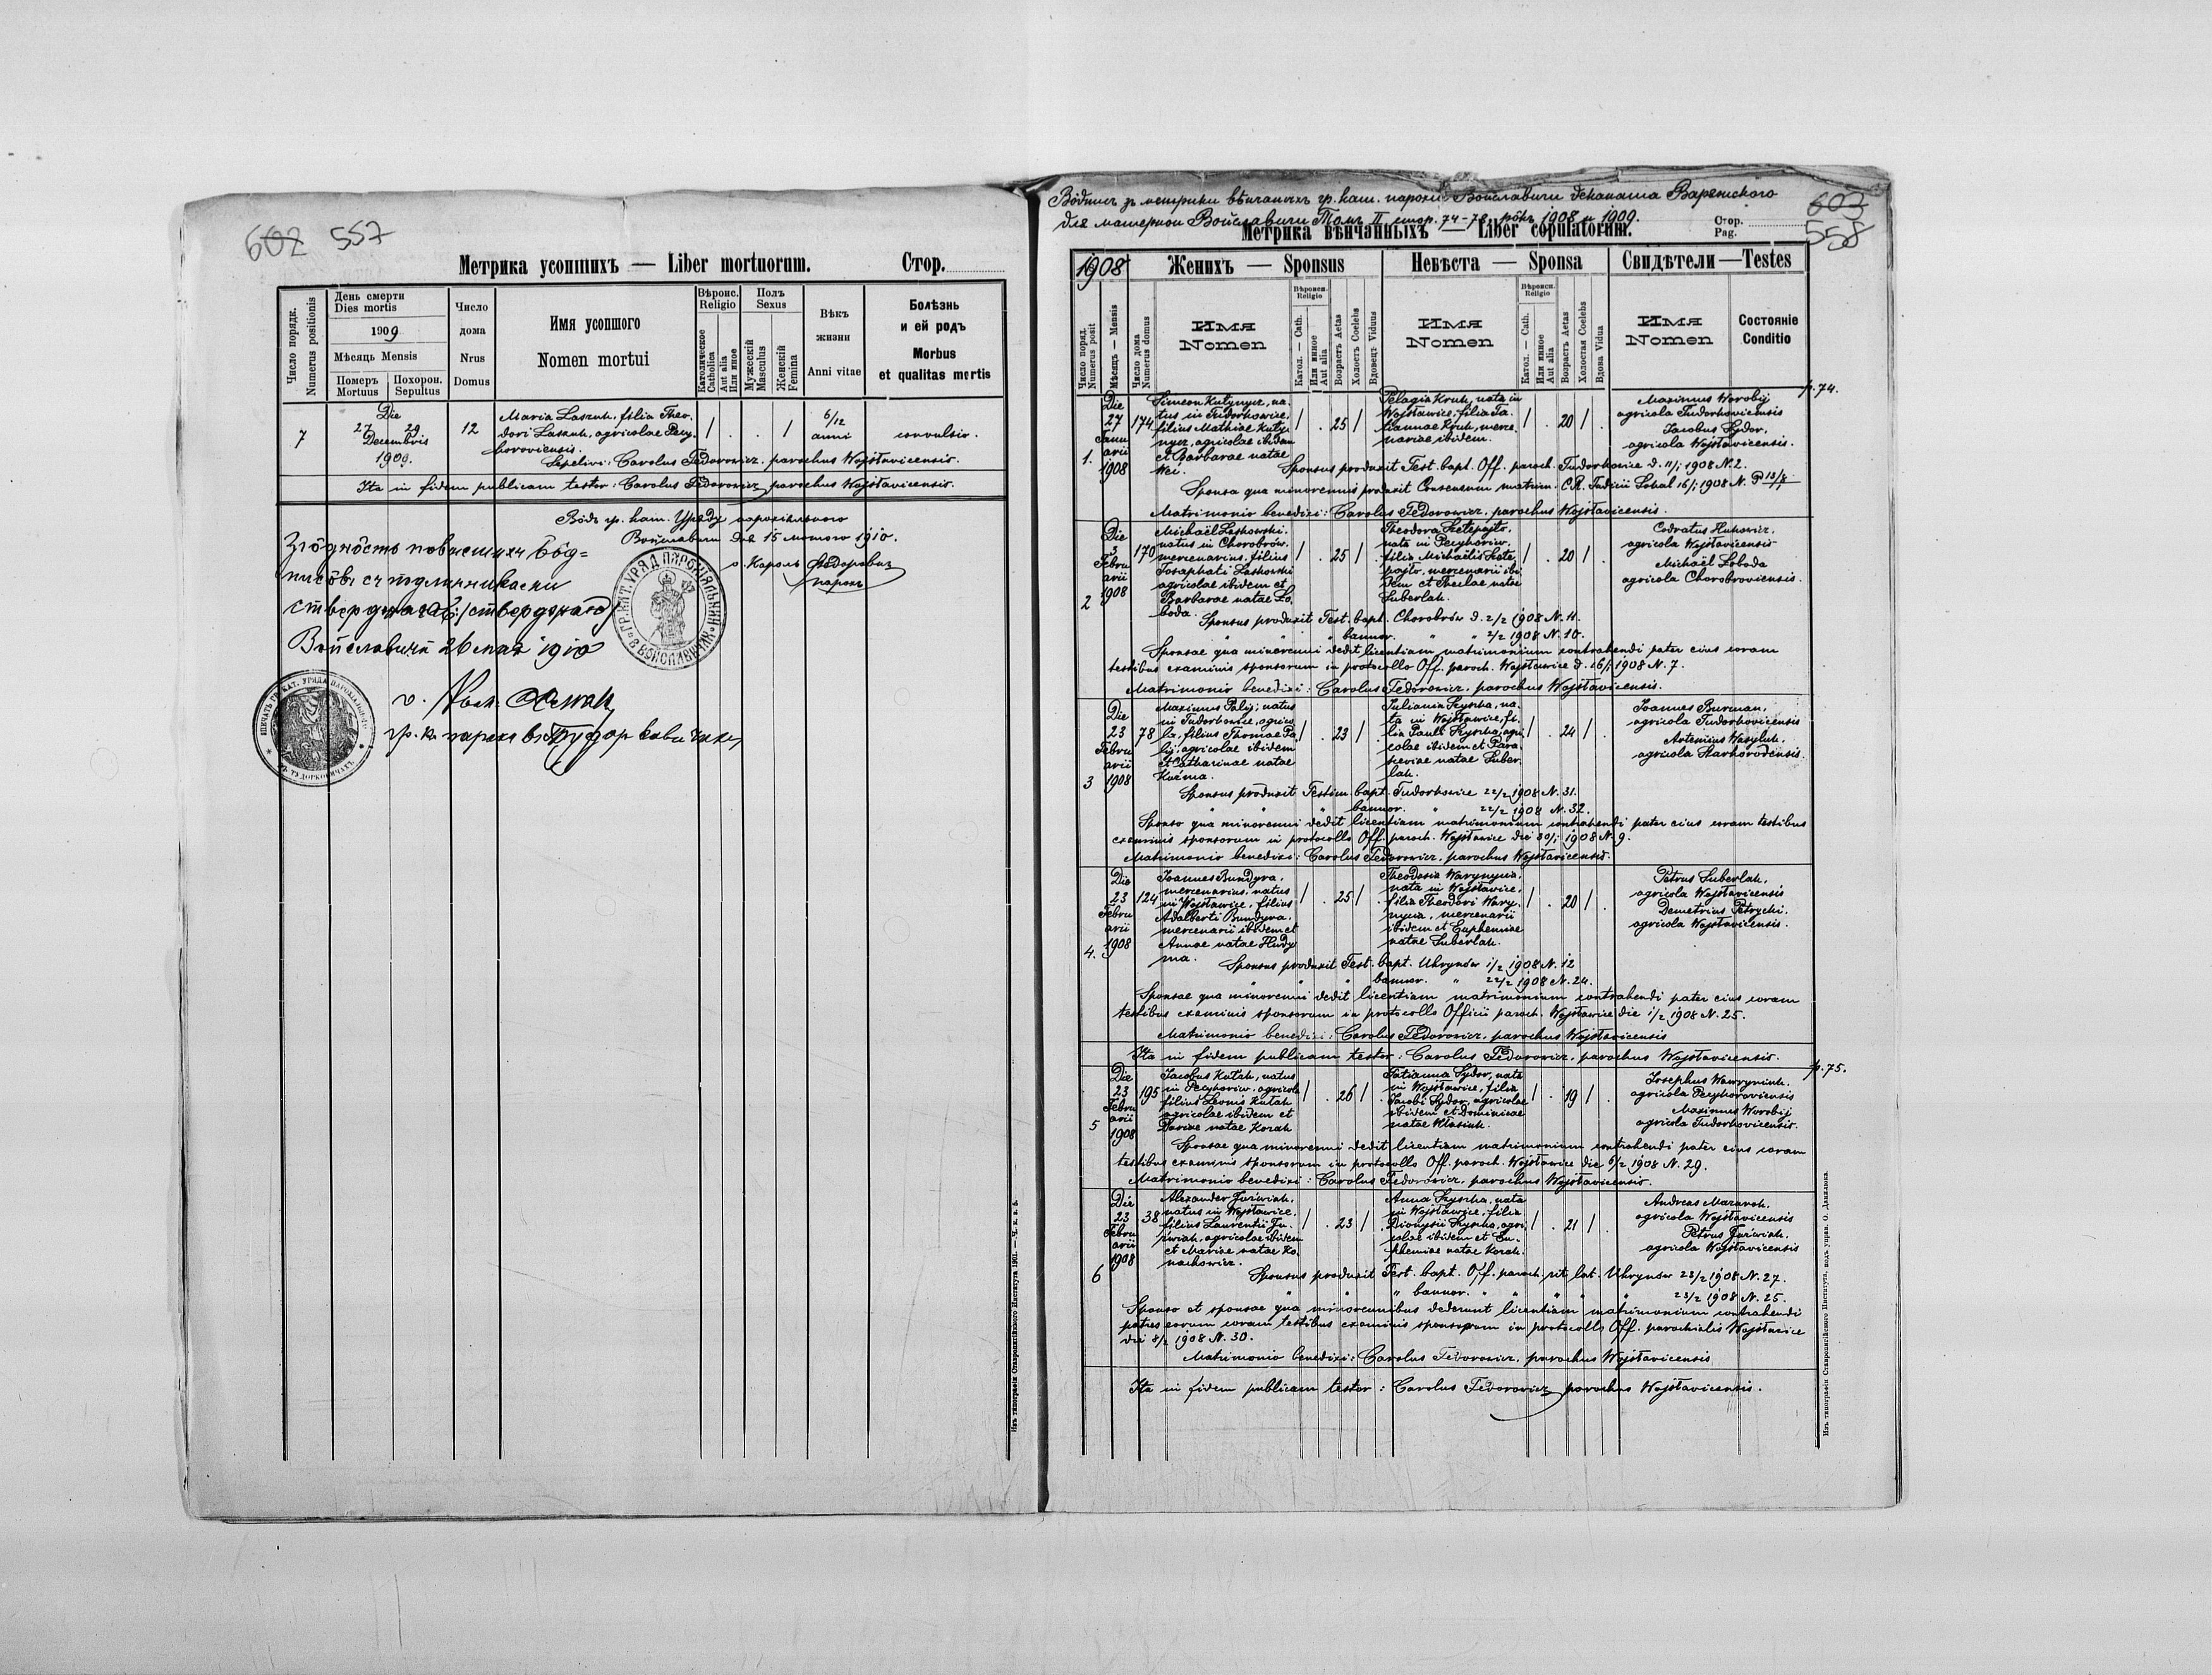 602 557
Метрика усопшихъ — Liber mortuorum. Стор.
Число порядк. Numerus positionis
День смерти Dies mortis
1909
Мѣсяць Mensis
Померъ Mortuus
Похорон. Sepultus
Число дома Nrus Domus
Имя усопшого
Nomen mortui
Вѣроис. Religio
Католическое Catholica
Aut alia Или иное
Полъ Sexus
Мужескій Masculus
Женскій Femina
Вѣкъ жизни
Anni vitae
Болѣзнь
и ей родъ
Morbus
et qualitas mortis
7
Die
27 29
Decembris
1909.
12
Maria Laszuk, filia Theo-
dori Laszuk, agricolae Pecy-
horoviensis.
6/12
anni
convulsio.
Sepelivi: Carolus Fedorowicz, parochus Wojsławicensis.
Ita in fidem publicam testor: Carolus Fedorowicz parochus Wojsławicensis.
Вôдъ гр. кат. Уряду парохіяльного
Войславичи дня 15 лютого 1910.
о. Кароль Федоровичъ
парохъ
Войславичи 26 мая 1910
Вôдписъ зъ метрики вѣнчаныхъ гр. кат. парохіи Войславичи деканата Варяжского
для матернои Войславичи Томъ II стор. 74-78 рôкъ 1908 и 1909.
603
558
Метрика вѣнчанныхъ — Liber copulatorum.
Стор.
Pag.
1908
Женихъ — Sponsus
Невѣста — Sponsa
Свидѣтели — Testes
Число поряд. Numerus posit
Мѣсяць — Mensis
Число дома Numerus domus
Имя
Nomen
Вѣроисп. Religio
Катол. — Cath.
Или иное Aut alia
Возрастъ Aetas
Холостъ Coelebs
Вдовецъ Viduus
Имя
Nomen
Вѣроисп. Religio
Катол. — Cath.
Или иное Aut alia
Возрастъ Aetas
Холостая Coelebs
Вдова Vidua
Имя
Nomen
Состояніе
Conditio
p. 74.
1.
Die
27
Janu
arii
1908
174
Simeon Kutynycz, na-
tus in Tudorkowice,
filius Mathiae Kuty-
nycz, agricolae ibidem
et Barbarae natae
25
Pelagia Kruk, nata in
Wojsławice, filia Ta-
tiannae Kruk, merce-
nariae ibidem.
20
Maximus Worobij
agricola Tudorkoviensis
Jacobus Sydor,
agricola Wojsławicensis.
Sponsus produxit Test. bapt. Off. paroch. Tudorkowice d. 11/1 1908 N. 2.
Sponsa qua minorennis produxit Consensum matrim. C.R. Judicii Sokal 16/1 1908 N. P 13/8
Matrimonio benedixi: Carolus Fedorowicz, parochus Wojsławicensis.
2
Die
3
Febru
arii
1908
170
Michaël Laskowski,
natus in Chorobrów,
mercenarius, filius
Josaphati Laskowski
agricolae ibidem et
Barbarae natae Ło-
boda.
25
nata in Pecyhorów,
filia Michaëlis
mercenarii ibi-
dem et Theclae natae
Suberlak.
20
agricola Wojsławicensis
Michaël Łoboda
agricola Chorobroviensis.
Sponsus produxit Test. bapt. Chorobrów d. 2/2 1908 N. 11.
" " " bannor. " " 2/2 1908 N. 10.
Sponsae qua minorenni dedit licentiam matrimonium contrahendi pater eius coram
testibus examinis sponsorum in protocollo Off. paroch. Wojsławice d. 16/1 1908 N. 7.
Matrimonio benedixi: Carolus Fedorowicz, parochus Wojsławicensis.
3
Die
23
Febru
arii
1908
78
Maximus Palij, natus
in Tudorkowice, agrico-
la, filius Thomae Pa-
lij, agricolae ibidem
et Catharinae natae
Kuźma.
23
Juliania Szyszka, na-
ta in Wojsławice, fi-
lia Pauli Szyszka, agri-
colae ibidem et Para-
sceviae natae Suber-
lak.
24
Joannes Burman,
agricola Tudorkoviensis
Artemius Wasyluk,
agricola Starhorodensis.
Sponsus produxit Testim. bapt. Tudorkowice 22/2 1908 N. 31.
" " " bannor. " 22/2 1908 N. 32.
Sponso qua minorenni dedit licentiam matrimonium contrahendi pater eius coram testibus
examinis sponsorum in protocollo Off. paroch. Wojsławice die 30/1 1908 N. 9.
Matrimonio benedixi: Carolus Fedorowicz, parochus Wojsławicensis.
4.
Die
23
Febru
arii
1908
124
Joannes Bundyra,
mercenarius, natus
in Wojsławice, filius
Adalberti Bundyra,
mercenarii ibidem et
Annae natae Hudy-
ma.
25
Theodosia Warynycia,
nata in Wojsławice,
filia Theodori Wary-
nycia, mercenarii
ibidem et Euphemiae
natae Suberlak.
20
Petrus Suberlak,
agricola Wojsławicensis
Demetrius Petrycki,
agricola Wojsławicensis.
Sponsus produxit Test. bapt. Uhrynów 1/2 1908 N. 12
" " " bannor. " 22/2 1908 N. 24.
Sponsae qua minorenni dedit licentiam matrimonium contrahendi pater eius coram
testibus examinis sponsorum in protocollo Officii paroch. Wojsławice die 1/2 1908 N. 25.
Matrimonio benedixi: Carolus Fedorowicz, parochus Wojsławicensis
Ita in fidem publicam testor: Carolus Fedorowicz, parochus Wojsławicensis.
p. 75.
5
Die
23
Febru
arii
1908
195
Jacobus Kułak, natus
in Pecyhorów, agricola
filius Leonis Kułak
agricolae ibidem et
Dariae natae Korak
26
Tatianna Sydor, nata
in Wojsławice, filia
Jacobi Sydor, agricolae
ibidem et Dominicae
natae Klasiuk.
19
Josephus Wawryniuk,
agricola Pecyhoroviensis
Maximus Worobij
agricola Tudorkoviensis.
Sponsae qua minorenni dedit licentiam matrimonium contrahendi pater eius coram
testibus examinis sponsorum in protocollo Off. paroch. Wojsławice die 6/2 1908 N. 29.
Matrimonio benedixi: Carolus Fedorowicz, parochus Wojsławicensis.
6
Die
23
Febru
arii
1908
38
Alexander Juświak,
natus in Wojsławice,
filius Laurentii Ju-
świak, agricolae ibidem
et Mariae natae Ko-
nachowicz.
23
Anna Szyszka, nata
in Wojsławice, filia
Dionysii Szyszka, agri-
colae ibidem et Eu-
phemiae natae Korak.
21
Andreas Mazurok,
agricola Wojsławicensis
Petrus Juświak,
agricola Wojsławicensis
Sponsus produxit Test. bapt. Off. paroch. rit. lat. Uhrynów 23/2 1908 N. 27.
" " " bannor. " " " " 23/2 1908 N. 25.
Sponso et sponsae qua minorennibus dederunt licentiam matrimonium contrahendi
patres eorum coram testibus examinis sponsorum in protocollo Off. parochialis Wojsławice
die 8/2 1908 N. 30.
Matrimonio benedixi: Carolus Fedorowicz, parochus Wojsławicensis
Ita in fidem publicam testor: Carolus Fedorowicz parochus Wojsławicensis.